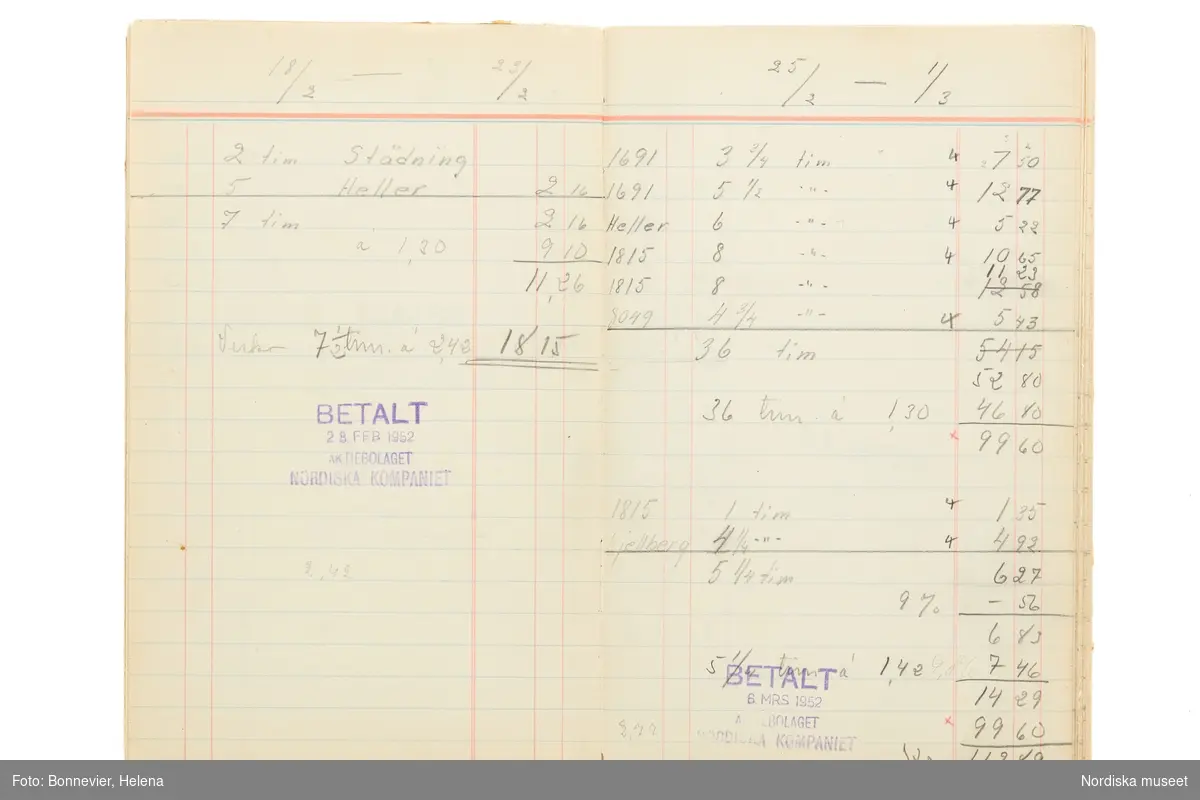 18/2 — 23/2
2 tim Städning
5 Heller 2 16
7 tim 2 16
à 1,30 9 10
11,26
7 1/2 tim. à 2,42 18 15
BETALT
28. FEB 1952
AKTIEBOLAGET
NORDISKA KOMPANIET
2,42
25/2 — 1/3
1691 3 3/4 tim 4 7 50
1691 5 1/2 -"- 4 12 77
Heller 6 -"- 4 5 22
1815 8 -"- 4 10 65
11 23
1815 8 -"- 12 58
8049 4 3/4 -"- 4 5 43
36 tim 54 15
52 80
36 tim. à 1,30 46 80
× 99 60
1815 1 tim 4 1 35
Kjellberg 4 1/4 -"- 4 4 92
5 1/4 tim 6 27
9 % — 56
6 83
5 1/4 tim. à 1,42 7 46
BETALT
14 29
6. MRS. 1952
AKTIEBOLAGET
× 99 60
NORDISKA KOMPANIET
113 89
Foto: Bonnevier, Helena
Nordiska museet